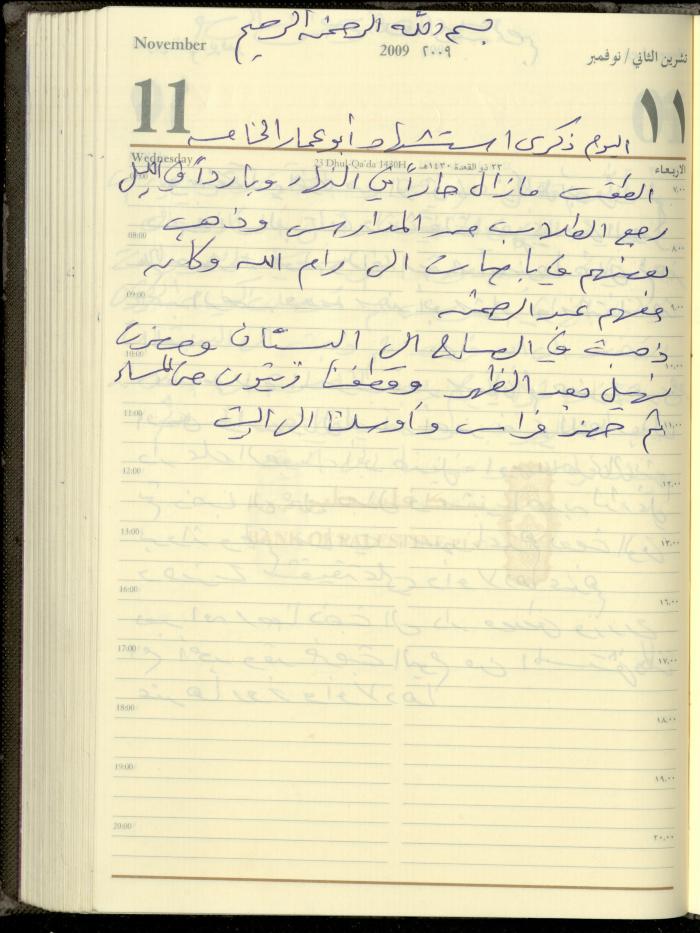 بسم الله الرحمن الرحيم
November
2009 ٢٠٠٩
تشرين الثاني / نوفمبر
11
١١
اليوم ذكرى استشهاد أبو عمار الخامسة
Wednesday
23 Dhul-Qa'da 1430H
٢٣ ذو القعدة ١٤٣٠هـ
الأربعاء
الطقس مازال حاراً في النهار وبارداً في الليل
٧:٠٠
رجع الطلاب من المدارس وذهب
08:00
٨:٠٠
بعضهم في باصات الى رام الله وكان
09:00
٩:٠٠
منهم عبد الرحمن
ذهبت في الصباح الى البستان
10:00
١٠:٠٠
بعد الظهر وقطفنا زيتون حتى المساء
11:00
١١:٠٠
ثم حضر فراس وأوصلنا الى البيت
12:00
١٢:٠٠
13:00
١٣:٠٠
BANK OF PALESTINE
16:00
١٦:٠٠
17:00
١٧:٠٠
18:00
١٨:٠٠
19:00
١٩:٠٠
20:00
٢٠:٠٠